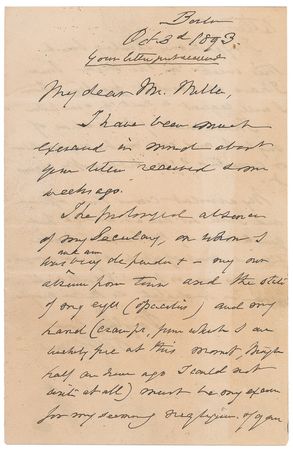 Boston
Oct 3d 1893.
Your letter just received
My dear Mr. Mills,
I have been much
exercised in mind about
your letter received some
weeks ago.
The prolonged absence
of my Secretary, on whom I
and am
was very dependent – my own
absence from town and the state
of my eyes (operation) and my
hand (cramps, from which I am
luckily free at this moment, though
half an hour ago I could not
write at all) must be my excuse
for my seeming negligence of your